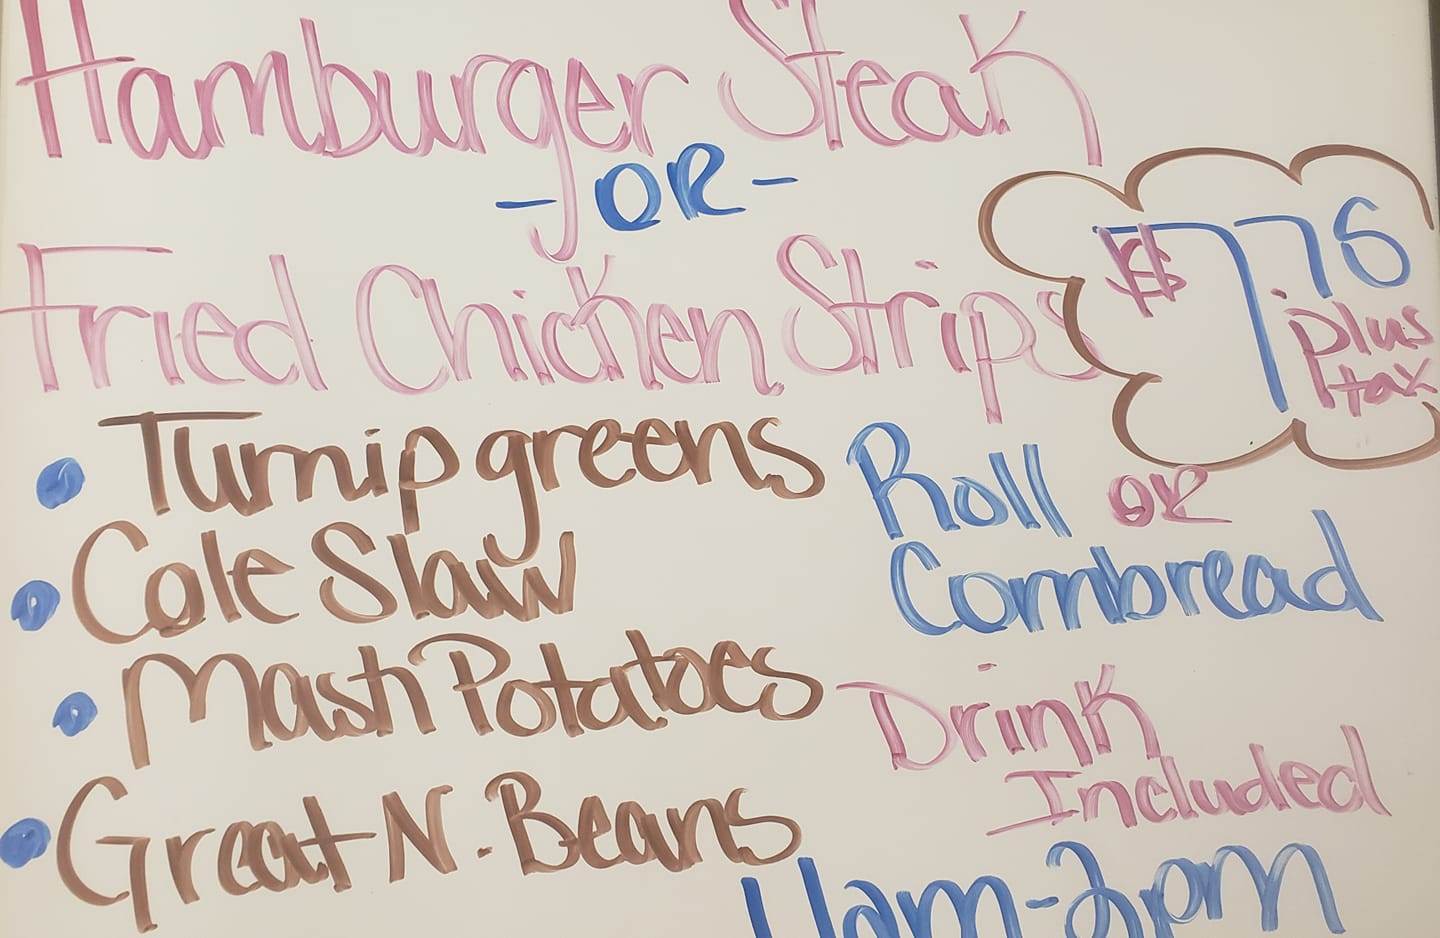 Hamburger Steak
- OR -
Fried Chicken Strips
$7.76
plus
tax
• Turnip greens
• Cole Slaw
• Mash Potatoes
• Great N. Beans
Roll OR
Cornbread
Drink
Included
11am-2pm